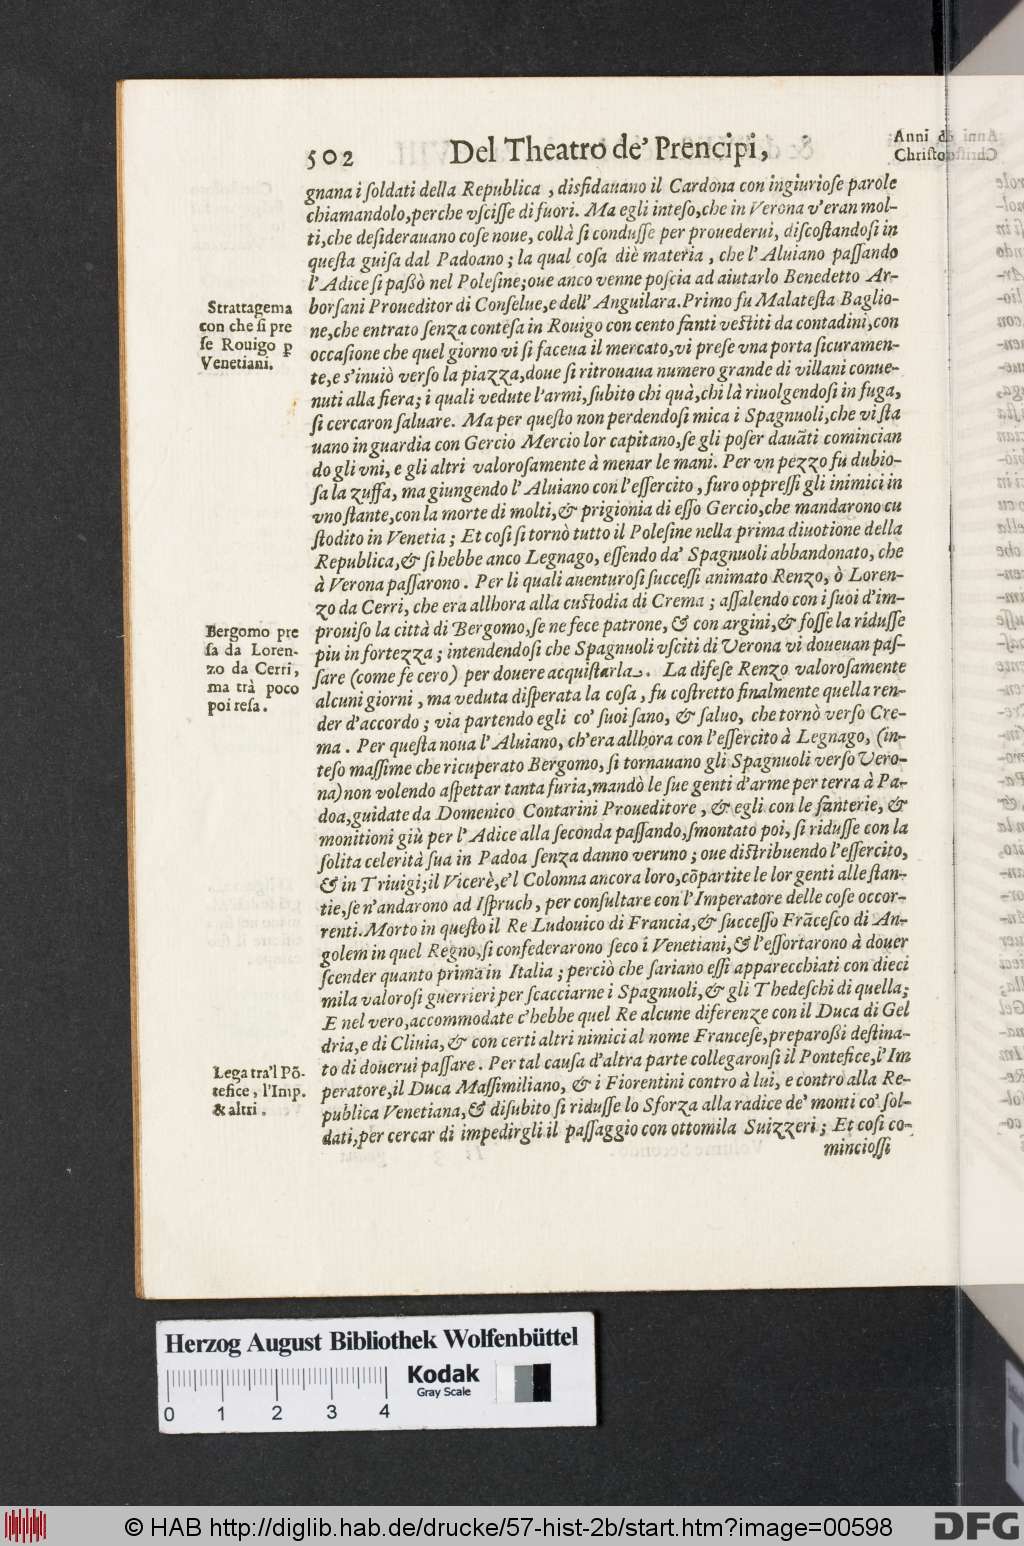 502 Del Theatro de' Prencipi,
Anni di
Christo
gnana i ſoldati della Republica, disfidauano il Cardona con ingiurioſe parole
chiamandolo, perche vſciſſe di fuori. Ma egli inteſo, che in Verona v'eran mol-
ti, che deſiderauano coſe noue, collà ſi conduſſe per prouederui, diſcoſtandoſi in
queſta guiſa dal Padoano; la qual coſa diè materia, che l'Aluiano paſſando
l'Adice ſi paſsò nel Poleſine; oue anco venne poſcia ad aiutarlo Benedetto Ar-
borſani Proueditor di Conſelue, e dell'Anguilara. Primo fu Malateſta Baglio-
ne, che entrato ſenza conteſa in Rouigo con cento fanti veſtiti da contadini, con
occaſione che quel giorno vi ſi faceua il mercato, vi preſe vna porta ſicuramen-
te, e s'inuiò verſo la piazza, doue ſi ritrouaua numero grande di villani conue-
nuti alla fiera; i quali vedute l'armi, ſubito chi quà, chi là riuolgendoſi in fuga,
ſi cercaron ſaluare. Ma per queſto non perdendoſi mica i Spagnuoli, che vi ſta
uano in guardia con Gercio Mercio lor capitano, ſe gli poſer dauāti comincian
do gli vni, e gli altri valoroſamente à menar le mani. Per vn pezzo fu dubio-
ſa la zuffa, ma giungendo l'Aluiano con l'eſſercito, furo oppreſſi gli inimici in
vno ſtante, con la morte di molti, & prigionia di eſſo Gercio, che mandarono cu
ſtodito in Venetia; Et coſi ſi tornò tutto il Poleſine nella prima diuotione della
Republica, & ſi hebbe anco Legnago, eſſendo da' Spagnuoli abbandonato, che
à Verona paſſarono. Per li quali auenturoſi ſucceſſi animato Renzo, ò Loren-
zo da Cerri, che era allhora alla cuſtodia di Crema; aſſalendo con i ſuoi d'im-
prouiſo la città di Bergomo, ſe ne fece patrone, & con argini, & foſſe la riduſſe
piu in fortezza; intendendoſi che Spagnuoli vſciti di Verona vi doueuan paſ-
ſare (come fe cero) per douere acquiſtarla. La difeſe Renzo valoroſamente
alcuni giorni, ma veduta diſperata la coſa, fu coſtretto finalmente quella ren-
der d'accordo; via partendo egli co' ſuoi ſano, & ſaluo, che tornò verſo Cre-
ma. Per queſta noua l'Aluiano, ch'era allhora con l'eſſercito à Legnago, (in-
teſo maſſime che ricuperato Bergomo, ſi tornauano gli Spagnuoli verſo Vero-
na) non volendo aſpettar tanta furia, mandò le ſue genti d'arme per terra à Pa-
doa, guidate da Domenico Contarini Proueditore, & egli con le fanterie, &
monitioni giù per l'Adice alla ſeconda paſſando, ſmontato poi, ſi riduſſe con la
ſolita celerità ſua in Padoa ſenza danno veruno; oue diſtribuendo l'eſſercito,
& in Triuigi; il Vicerè, e'l Colonna ancora loro, cōpartite le lor genti alle ſtan-
tie, ſe n'andarono ad Iſpruch, per conſultare con l'Imperatore delle coſe occor-
renti. Morto in queſto il Re Ludouico di Francia, & ſucceſſo Frāceſco di An-
golem in quel Regno, ſi confederarono ſeco i Venetiani, & l'eſſortarono à douer
ſcender quanto prima in Italia; perciò che ſariano eſſi apparecchiati con dieci
mila valoroſi guerrieri per ſcacciarne i Spagnuoli, & gli Thedeſchi di quella;
E nel vero, accommodate c'hebbe quel Re alcune diferenze con il Duca di Gel
dria, e di Cliuia, & con certi altri nimici al nome Franceſe, preparoßi deſtina-
to di douerui paſſare. Per tal cauſa d'altra parte collegaronſi il Pontefice, l'Im
peratore, il Duca Maſſimiliano, & i Fiorentini contro à lui, e contro alla Re-
publica Venetiana, & diſubito ſi riduſſe lo Sforza alla radice de' monti co' ſol-
dati, per cercar di impedirgli il paſſaggio con ottomila Suizzeri; Et coſi co-
mincioſſi
Strattagema
con che ſi pre
ſe Rouigo ꝑ
Venetiani.
Bergomo pre
ſa da Loren-
zo da Cerri,
ma trà poco
poi reſa.
Lega tra'l Pō-
tefice, l'Imp.
& altri.
Herzog August Bibliothek Wolfenbüttel
Kodak
Gray Scale
0 1 2 3 4
© HAB http://diglib.hab.de/drucke/57-hist-2b/start.htm?image=00598
DFG